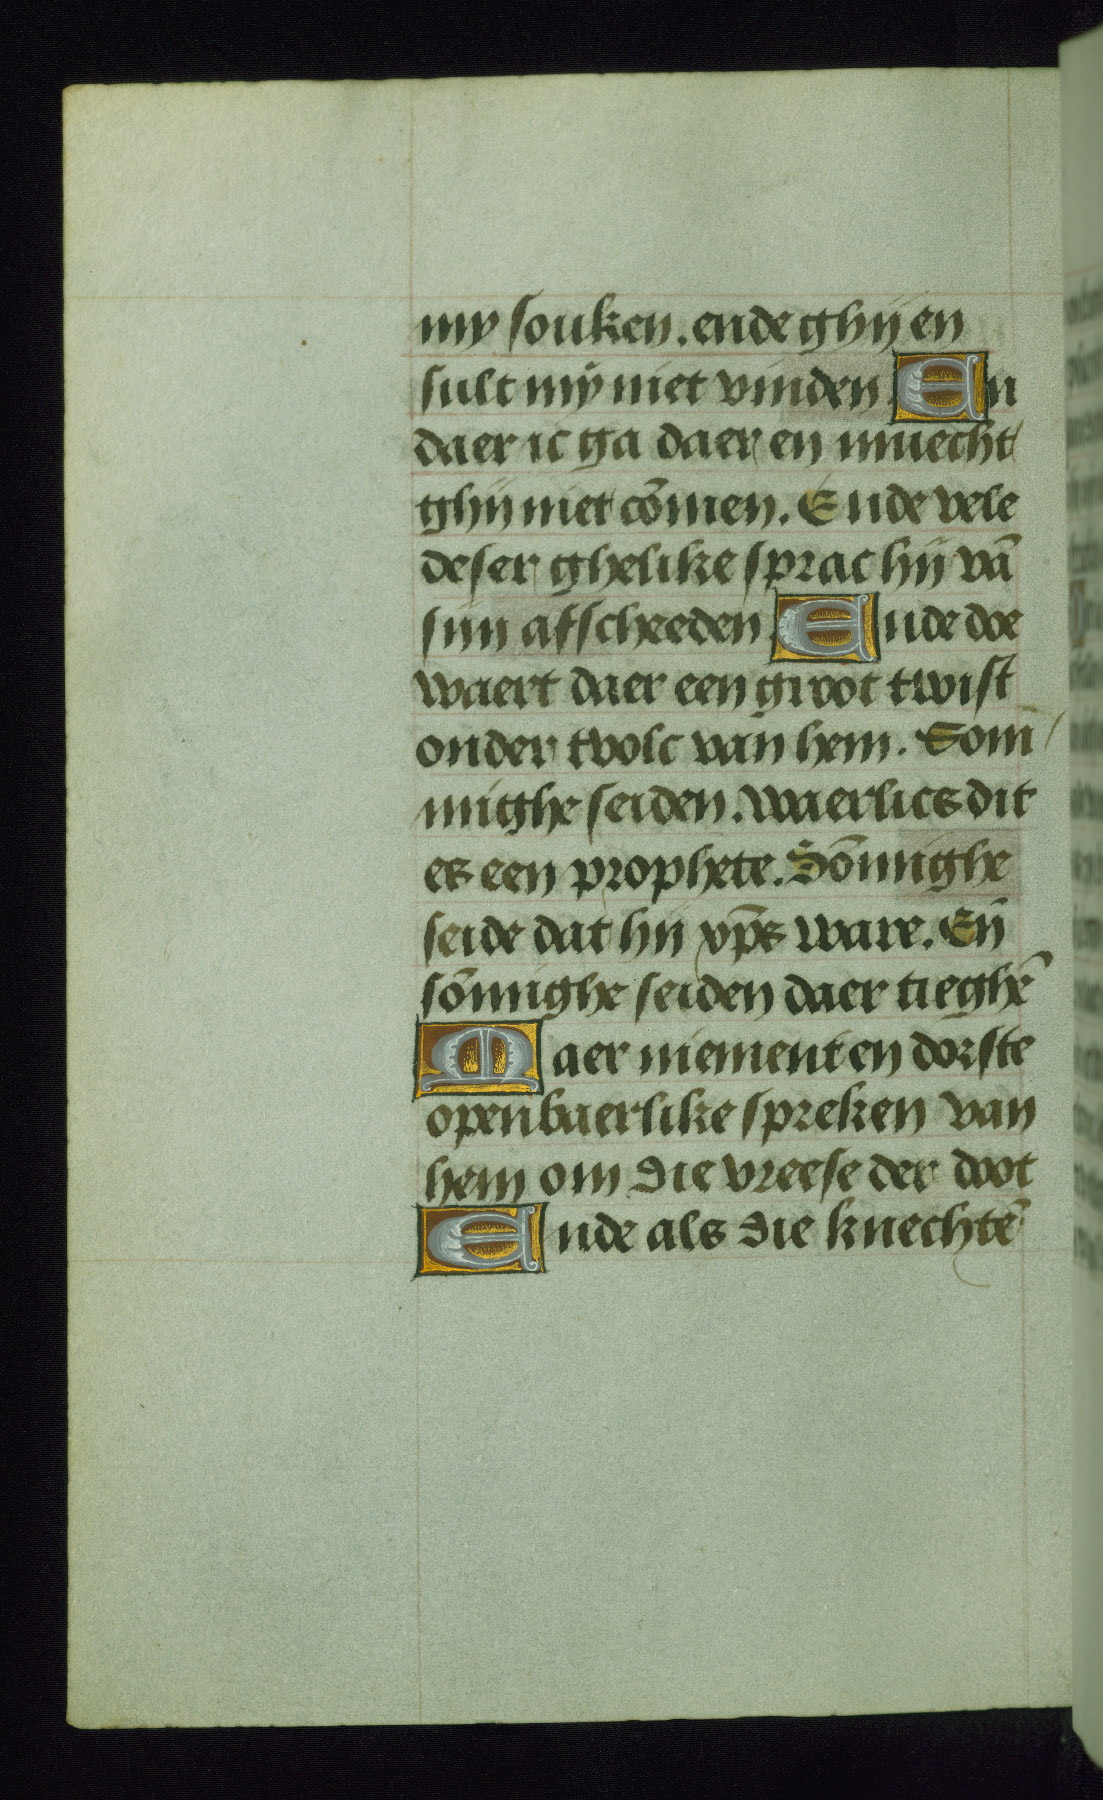 my souken. ende ghij en
sult mij niet vinden. En
daer ic ga daer en muecht
ghij niet cōmen. Ende vele
deser ghelike sprac hij vā
sijn afscheeden. Ende doe
waert daer een groot twist
onder tvolc van hem. Som
mighe seiden. waerlics dit
es een prophete. Sōmighe
seide dat hij xp̄s ware. Eñ
sōmighe seiden daer tieghē
Maer niement en dorste
openbaerlike spreken van
hem om die vreese der doot
Ende als die knechtē